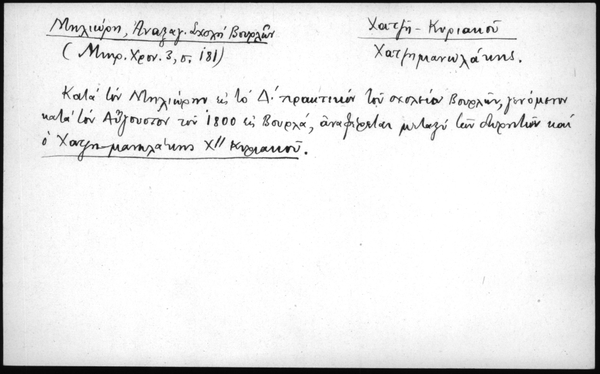 Μηλιώρη, Ἀναξαγ. Σχολή Βουρλῶν
(Μικρ. Χρον. 3, σ. 181)
Χατζῆ-Κυριακοῦ
Χατζημανωλάκης.
Κατά τόν Μηλιώρην εἰς τό Δ΄ πρακτικόν τοῦ σχολείου Βουρλῶν, γενόμενον
κατά τόν Αὔγουστον τοῦ 1800 εἰς Βουρλά, ἀναφέρεται μεταξύ τῶν καί
ὁ Χατζη-μανωλάκης Χ'' Κυριακοῦ.